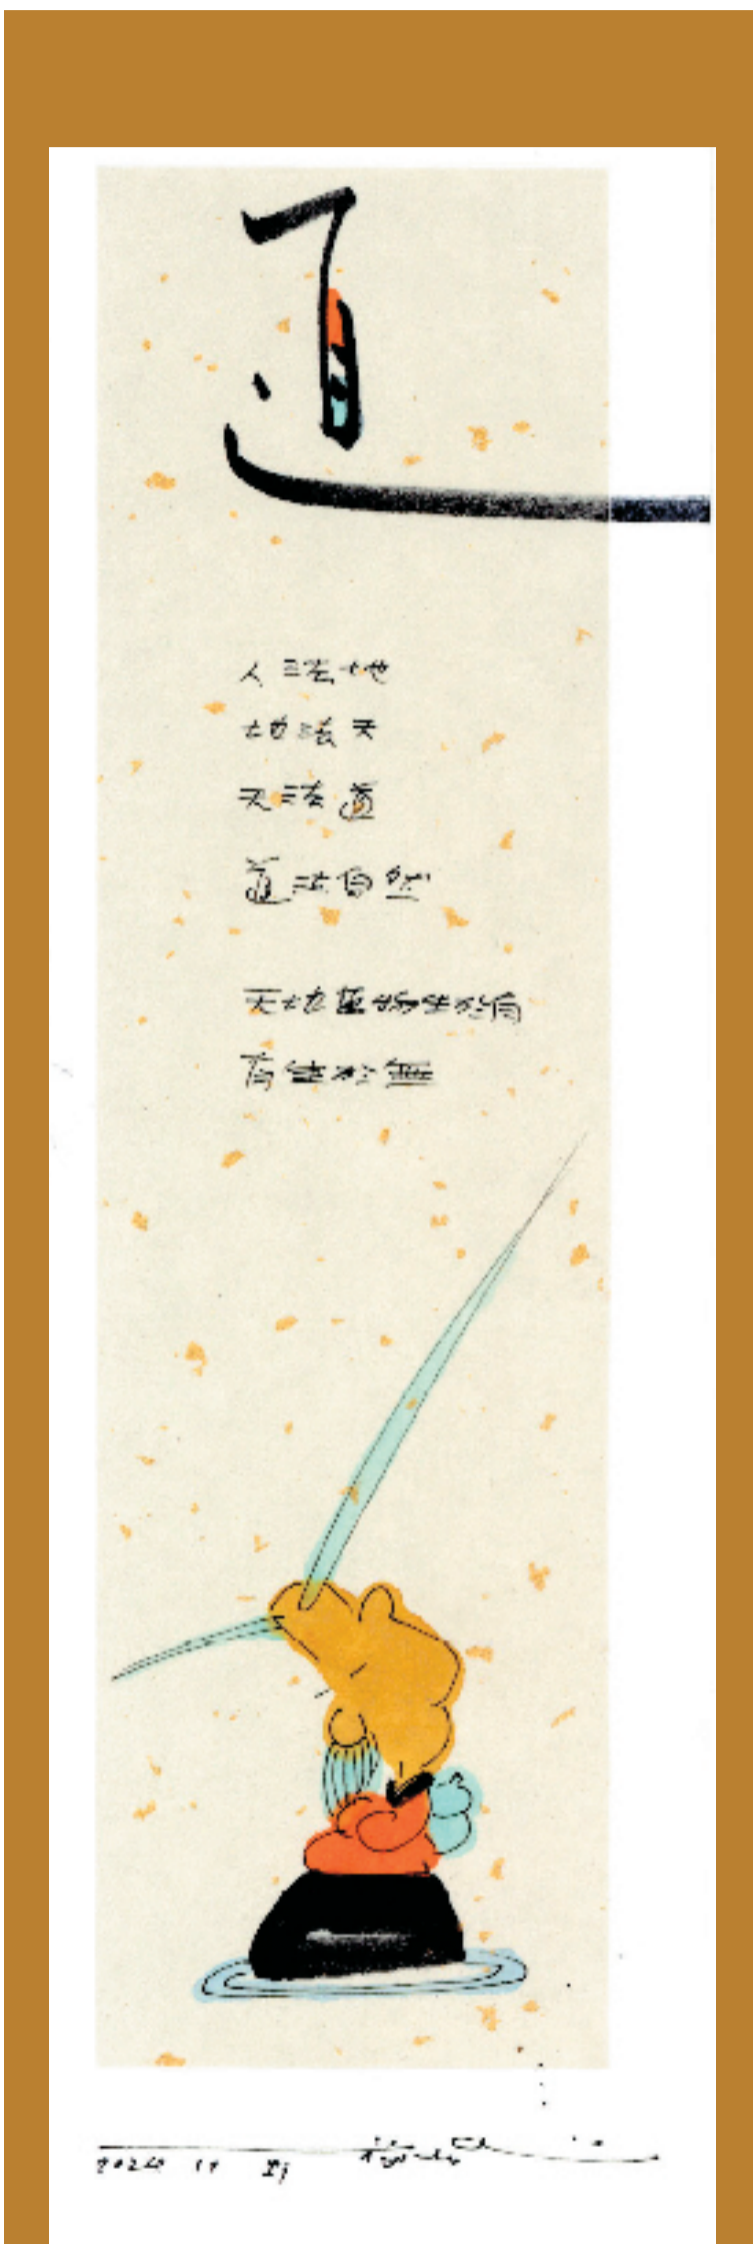 道
人法地
地法天
天法道
道法自然
天地萬物生於有
有生於無
2024 11